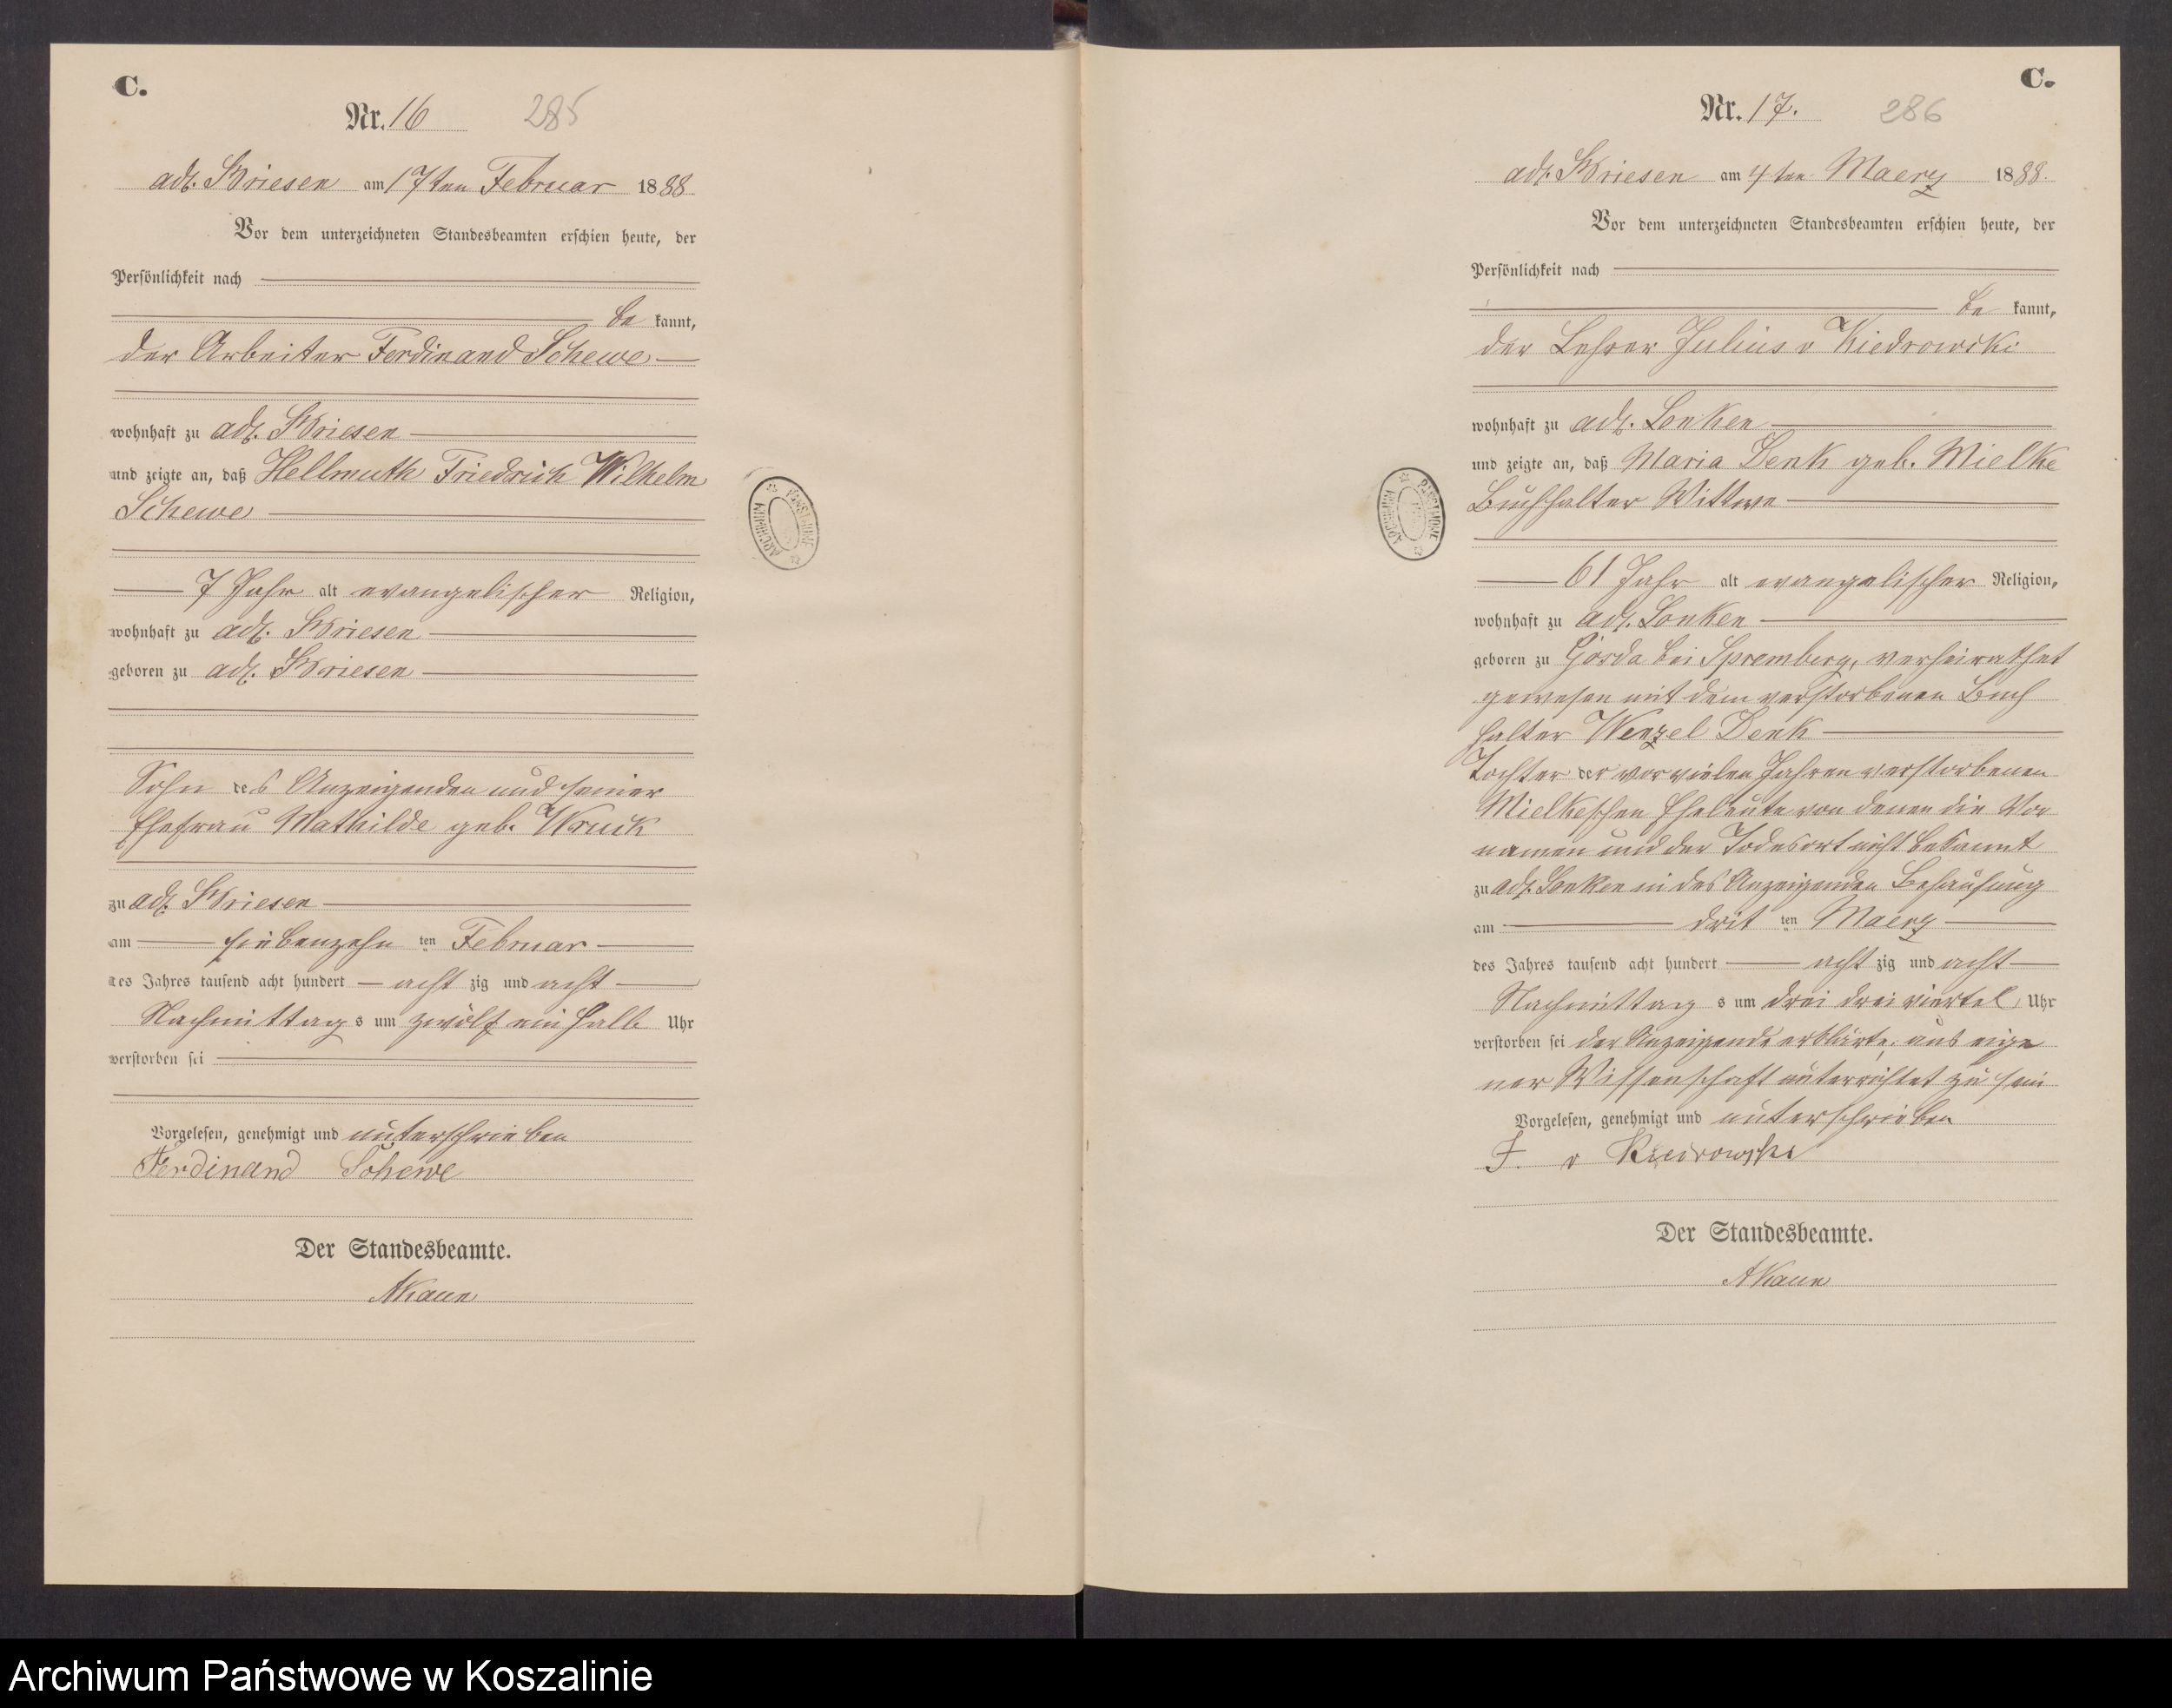 C.
Nr. 16 285
adl. Briesen am 17ten Februar 1888.
Vor dem unterzeichneten Standesbeamten erschien heute, der
Persönlichkeit nach
be kannt,
der Arbeiter Ferdinand Schewe
wohnhaft zu adl. Briesen
und zeigte an, daß Hellmuth Friedrich Wilhelm
Schewe
7 Jahr alt evangelischer Religion,
wohnhaft zu adl. Briesen
geboren zu adl. Briesen
Sohn des Anzeigenden und seiner
Ehefrau Mathilde geb. Wruck
zu adl. Briesen
am siebenzehn ten Februar
des Jahres tausend acht hundert acht zig und acht
Nachmittag s um zwölf ein halb Uhr
verstorben sei
Vorgelesen, genehmigt und unterschrieben
Ferdinand Schewe
Der Standesbeamte.
C.
Nr. 17. 286
adl. Briesen am 4ten Maerz 1888.
Vor dem unterzeichneten Standesbeamten erschien heute, der
Persönlichkeit nach
be kannt,
der Lehrer Julius v Kiedrowski
wohnhaft zu adl. Lonken
und zeigte an, daß Maria Denk geb. Mielke
Buchhalter Wittwe
61 Jahr alt evangelischer Religion,
wohnhaft zu adl. Lonken
geboren zu bei Spremberg, verheirathet
gewesen mit dem verstorbenen Buch
halter Wenzel Denk
Tochter der vor vielen Jahren verstorbenen
Mielkeschen Eheleute von denen die Vor
namen und der Todesort nicht bekannt
zu adl. Lonken in des Anzeigenden Behausung
am drit ten Maerz
des Jahres tausend acht hundert acht zig und acht
Nachmittag s um drei dreiviertel Uhr
verstorben sei der Anzeigende erklärte, aus eige
ner Wissenschaft unterrichtet zu sein
Vorgelesen, genehmigt und unterschrieben
J. v Kiedrowski
Der Standesbeamte.
Archiwum Państwowe w Koszalinie